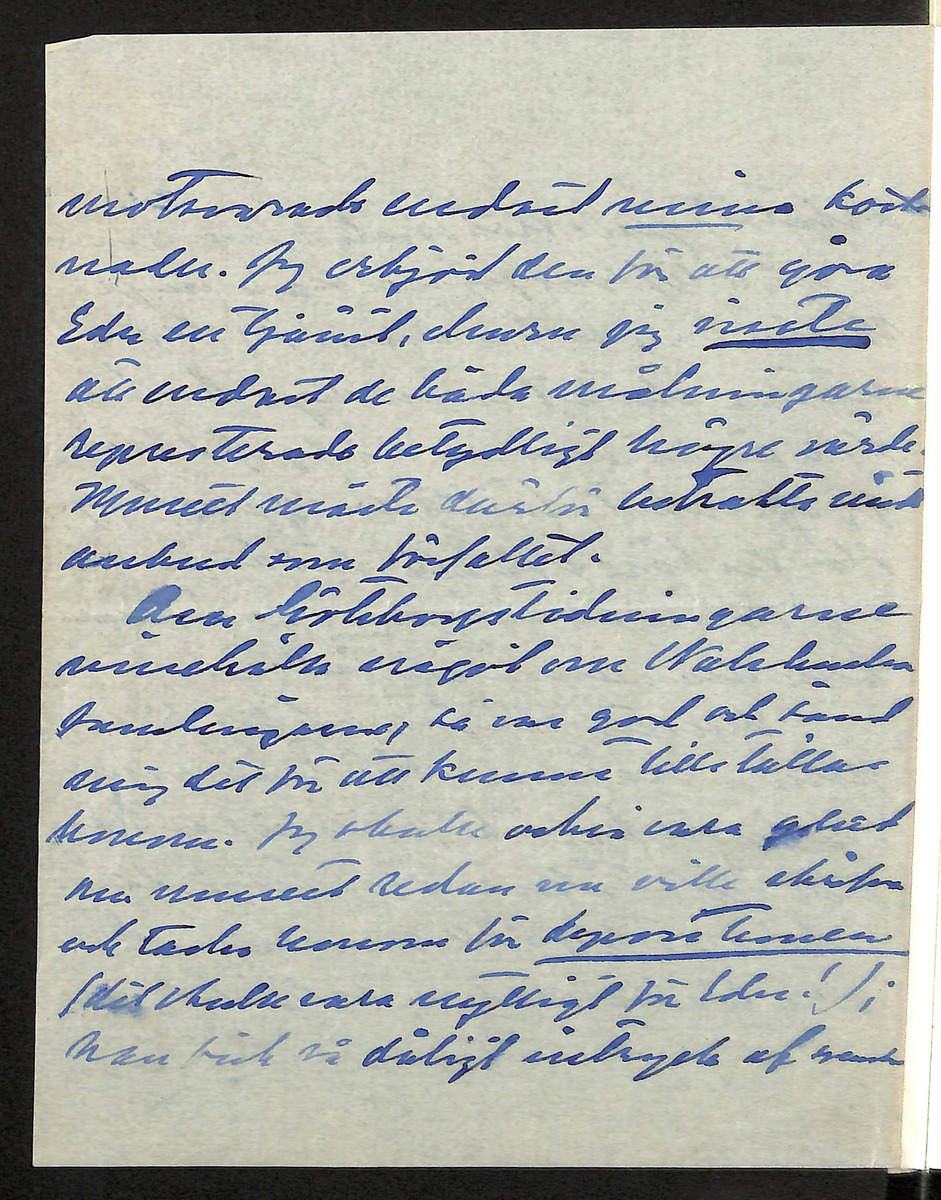 motsvarade endast mina kost-
nader. Jag erbjöd den för att göra
Eder en tjänst, ehuru jag visste
att endast de båda målningarne
representerade betydligt högre värde.
Museet måste därför betrakta mitt
anbud som förfallet.
Om Götheborgstidningarne
innehålla något om
samlingarne, så var god och sänd
mig det för att kunna tillställas
honom. Jag skulle också vara glad
om museet redan nu ville skrifva
och tacka honom för depositionen
(det skulle vara nyttigt för Eder!) ;
han fick så dåligt intryck af